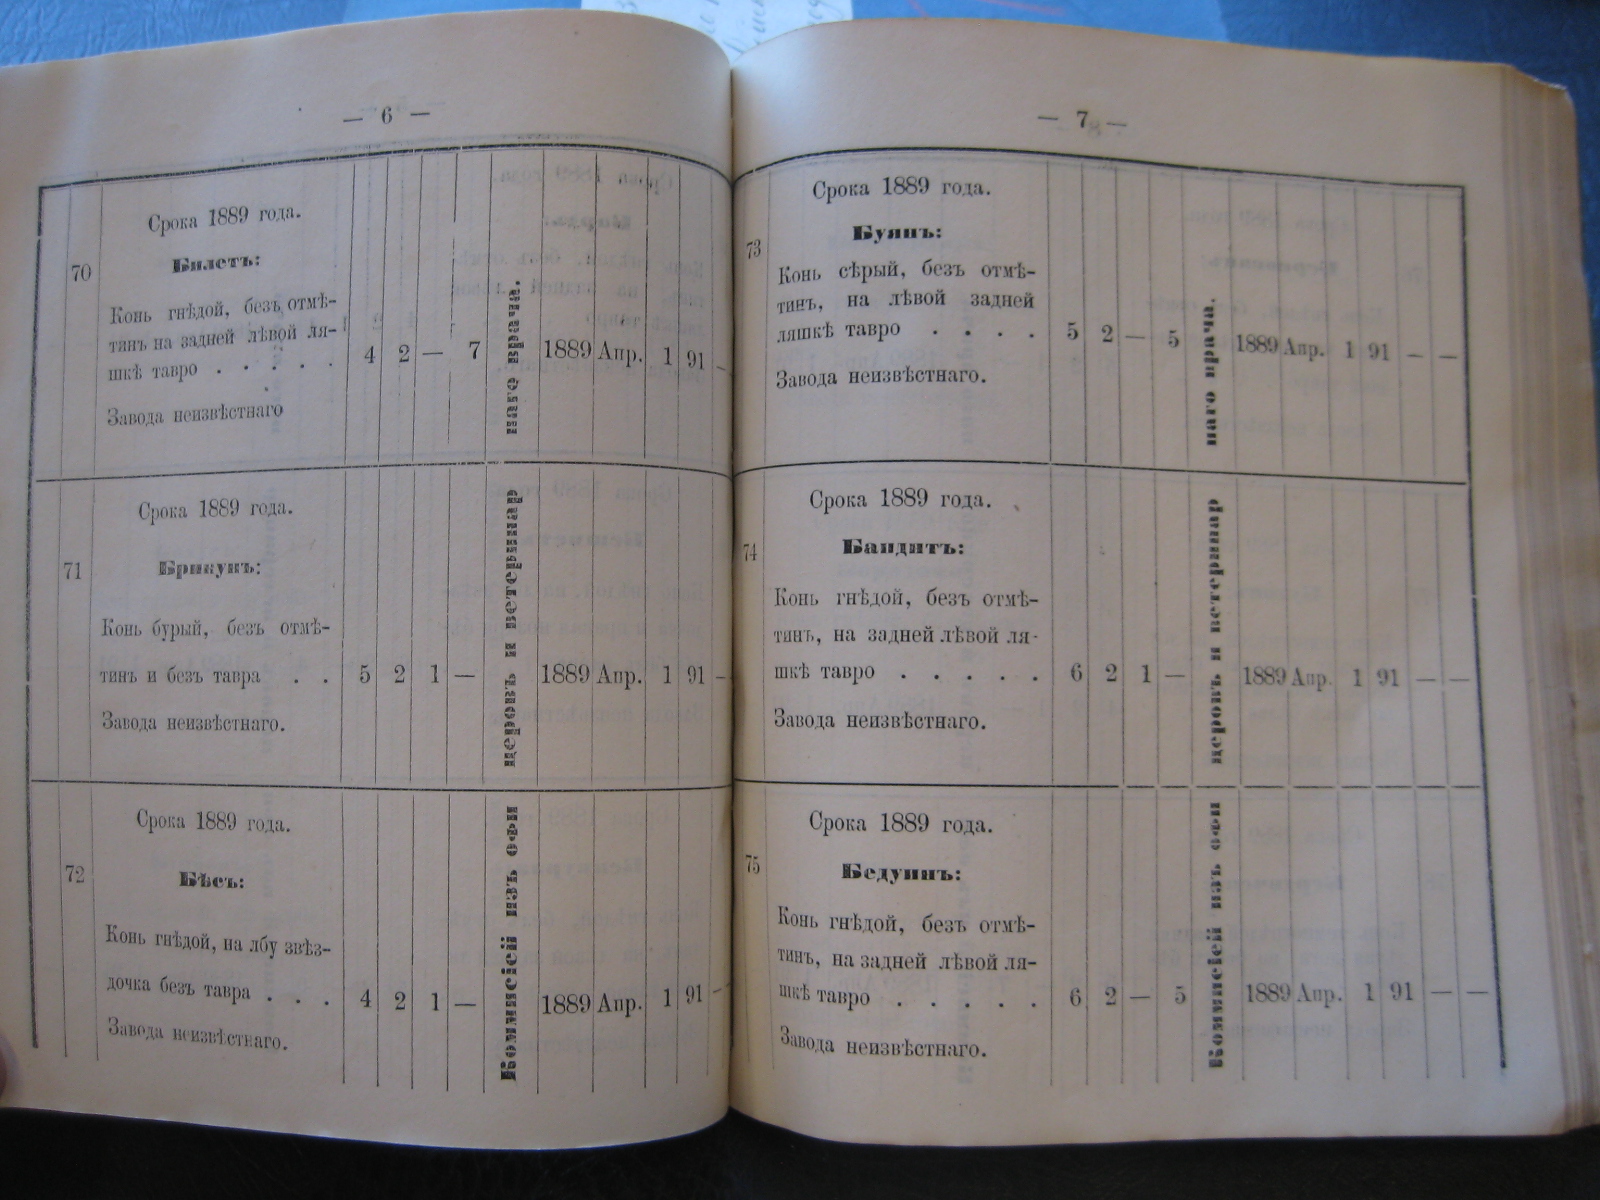 — 6 —
70
Срока 1889 года.
Билетъ:
Конь гнѣдой, безъ отмѣ-
тинъ на задней лѣвой ля-
шкѣ тавро . . . . . 4 2 — 7 1889 Апр. 1 91 —
Завода неизвѣстнаго
71
Срока 1889 года.
Брикунъ:
Конь бурый, безъ отмѣ-
тинъ и безъ тавра . . 5 2 1 — 1889 Апр. 1 91 —
Завода неизвѣстнаго.
72
Срока 1889 года.
Бѣсъ:
Конь гнѣдой, на лбу звѣз-
дочка безъ тавра . . . 4 2 1 — 1889 Апр. 1 91 —
Завода неизвѣстнаго.
Коммисіей изъ офи
церовъ и ветеринар
наго врача.
— 7 —
73
Срока 1889 года.
Буянъ:
Конь сѣрый, безъ отмѣ-
тинъ, на лѣвой задней
ляшкѣ тавро . . . . 5 2 — 5 1889 Апр. 1 91 — —
Завода неизвѣстнаго.
74
Срока 1889 года.
Бандитъ:
Конь гнѣдой, безъ отмѣ-
тинъ, на задней лѣвой ля-
шкѣ тавро . . . . . 6 2 1 — 1889 Апр. 1 91 — —
Завода неизвѣстнаго.
75
Срока 1889 года.
Бедуинъ:
Конь гнѣдой, безъ отмѣ-
тинъ, на задней лѣвой ля-
шкѣ тавро . . . . . 6 2 — 5 1889 Апр. 1 91 — —
Завода неизвѣстнаго.
Коммисіей изъ офи
церовъ и ветеринар
наго врача.